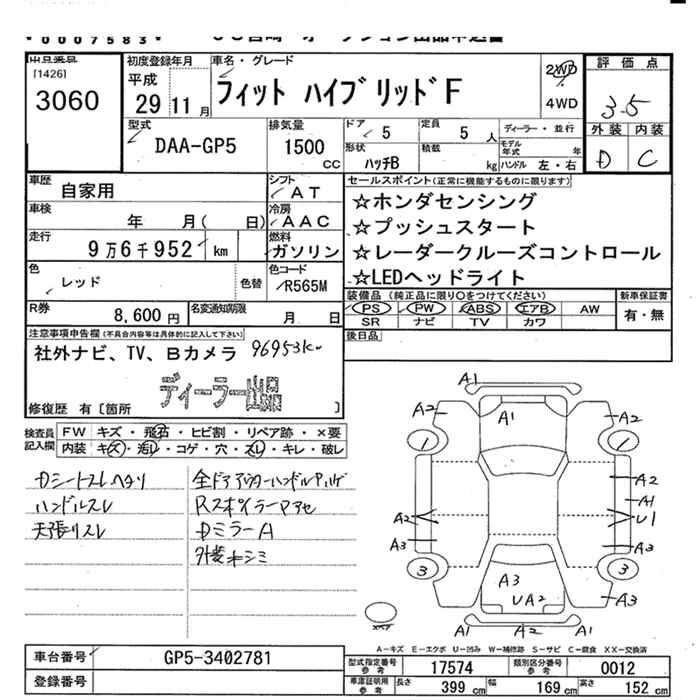 *0007583*
出品番号
[1426]
3060
初度登録年月
平成
29 11 月
車名・グレード
フィット ハイブリッド F
2WD
4WD
評 価 点
3.5
外 装 内 装
D C
型式
DAA-GP5
排気量
1500 CC
ドア 5
定員 5 人
ディーラー・並行
形状 ハッチB
積載 kg
モデル年式 年
ハンドル 左・右
車歴 自家用
シフト AT
セールスポイント(正常に機能するものに限ります)
☆ホンダセンシング
☆プッシュスタート
☆レーダークルーズコントロール
☆LEDヘッドライト
車検 年 月( 日)
冷房 AAC
走行 9万6千952 km
燃料 ガソリン
色 レッド
色替
色コード R565M
装備品(純正品に限り○をつけてください)
PS PW ABS エアB AW
SR ナビ TV カワ
新車保証書
有・無
R券 8,600 円
名変通知期限 月 日
後日品
注意事項申告欄(不具合内容等は具体的に記入して下さい)
社外ナビ、TV、Bカメラ 96953km
ディーラー出品
修復歴 有〔箇所 〕
検査員記入欄
FW キズ・飛石・ヒビ割・リペア跡・×要
内装 キズ・汚レ・コゲ・穴・スレ・キレ・破レ
Dシートスレヘタリ
ハンドルスレ
天張リスレ
全ドアアウターハンドル
Rスポイラーアセ
DミラーA
A1
A2 A1 A2
1 1
A2
A1
A2 U1
A3 A3
3 3
A3
UA2 A3
A1 A2
A1
A-キズ E-エクボ U-凹み W-補修跡 S-サビ C-腐食 XX-交換済
車台番号 GP5-3402781
登録番号
型式指定番号 参考 17574
類別区分番号 参考 0012
車庫証明用 参考 長さ 399 cm 幅 169 cm 高さ 152 cm